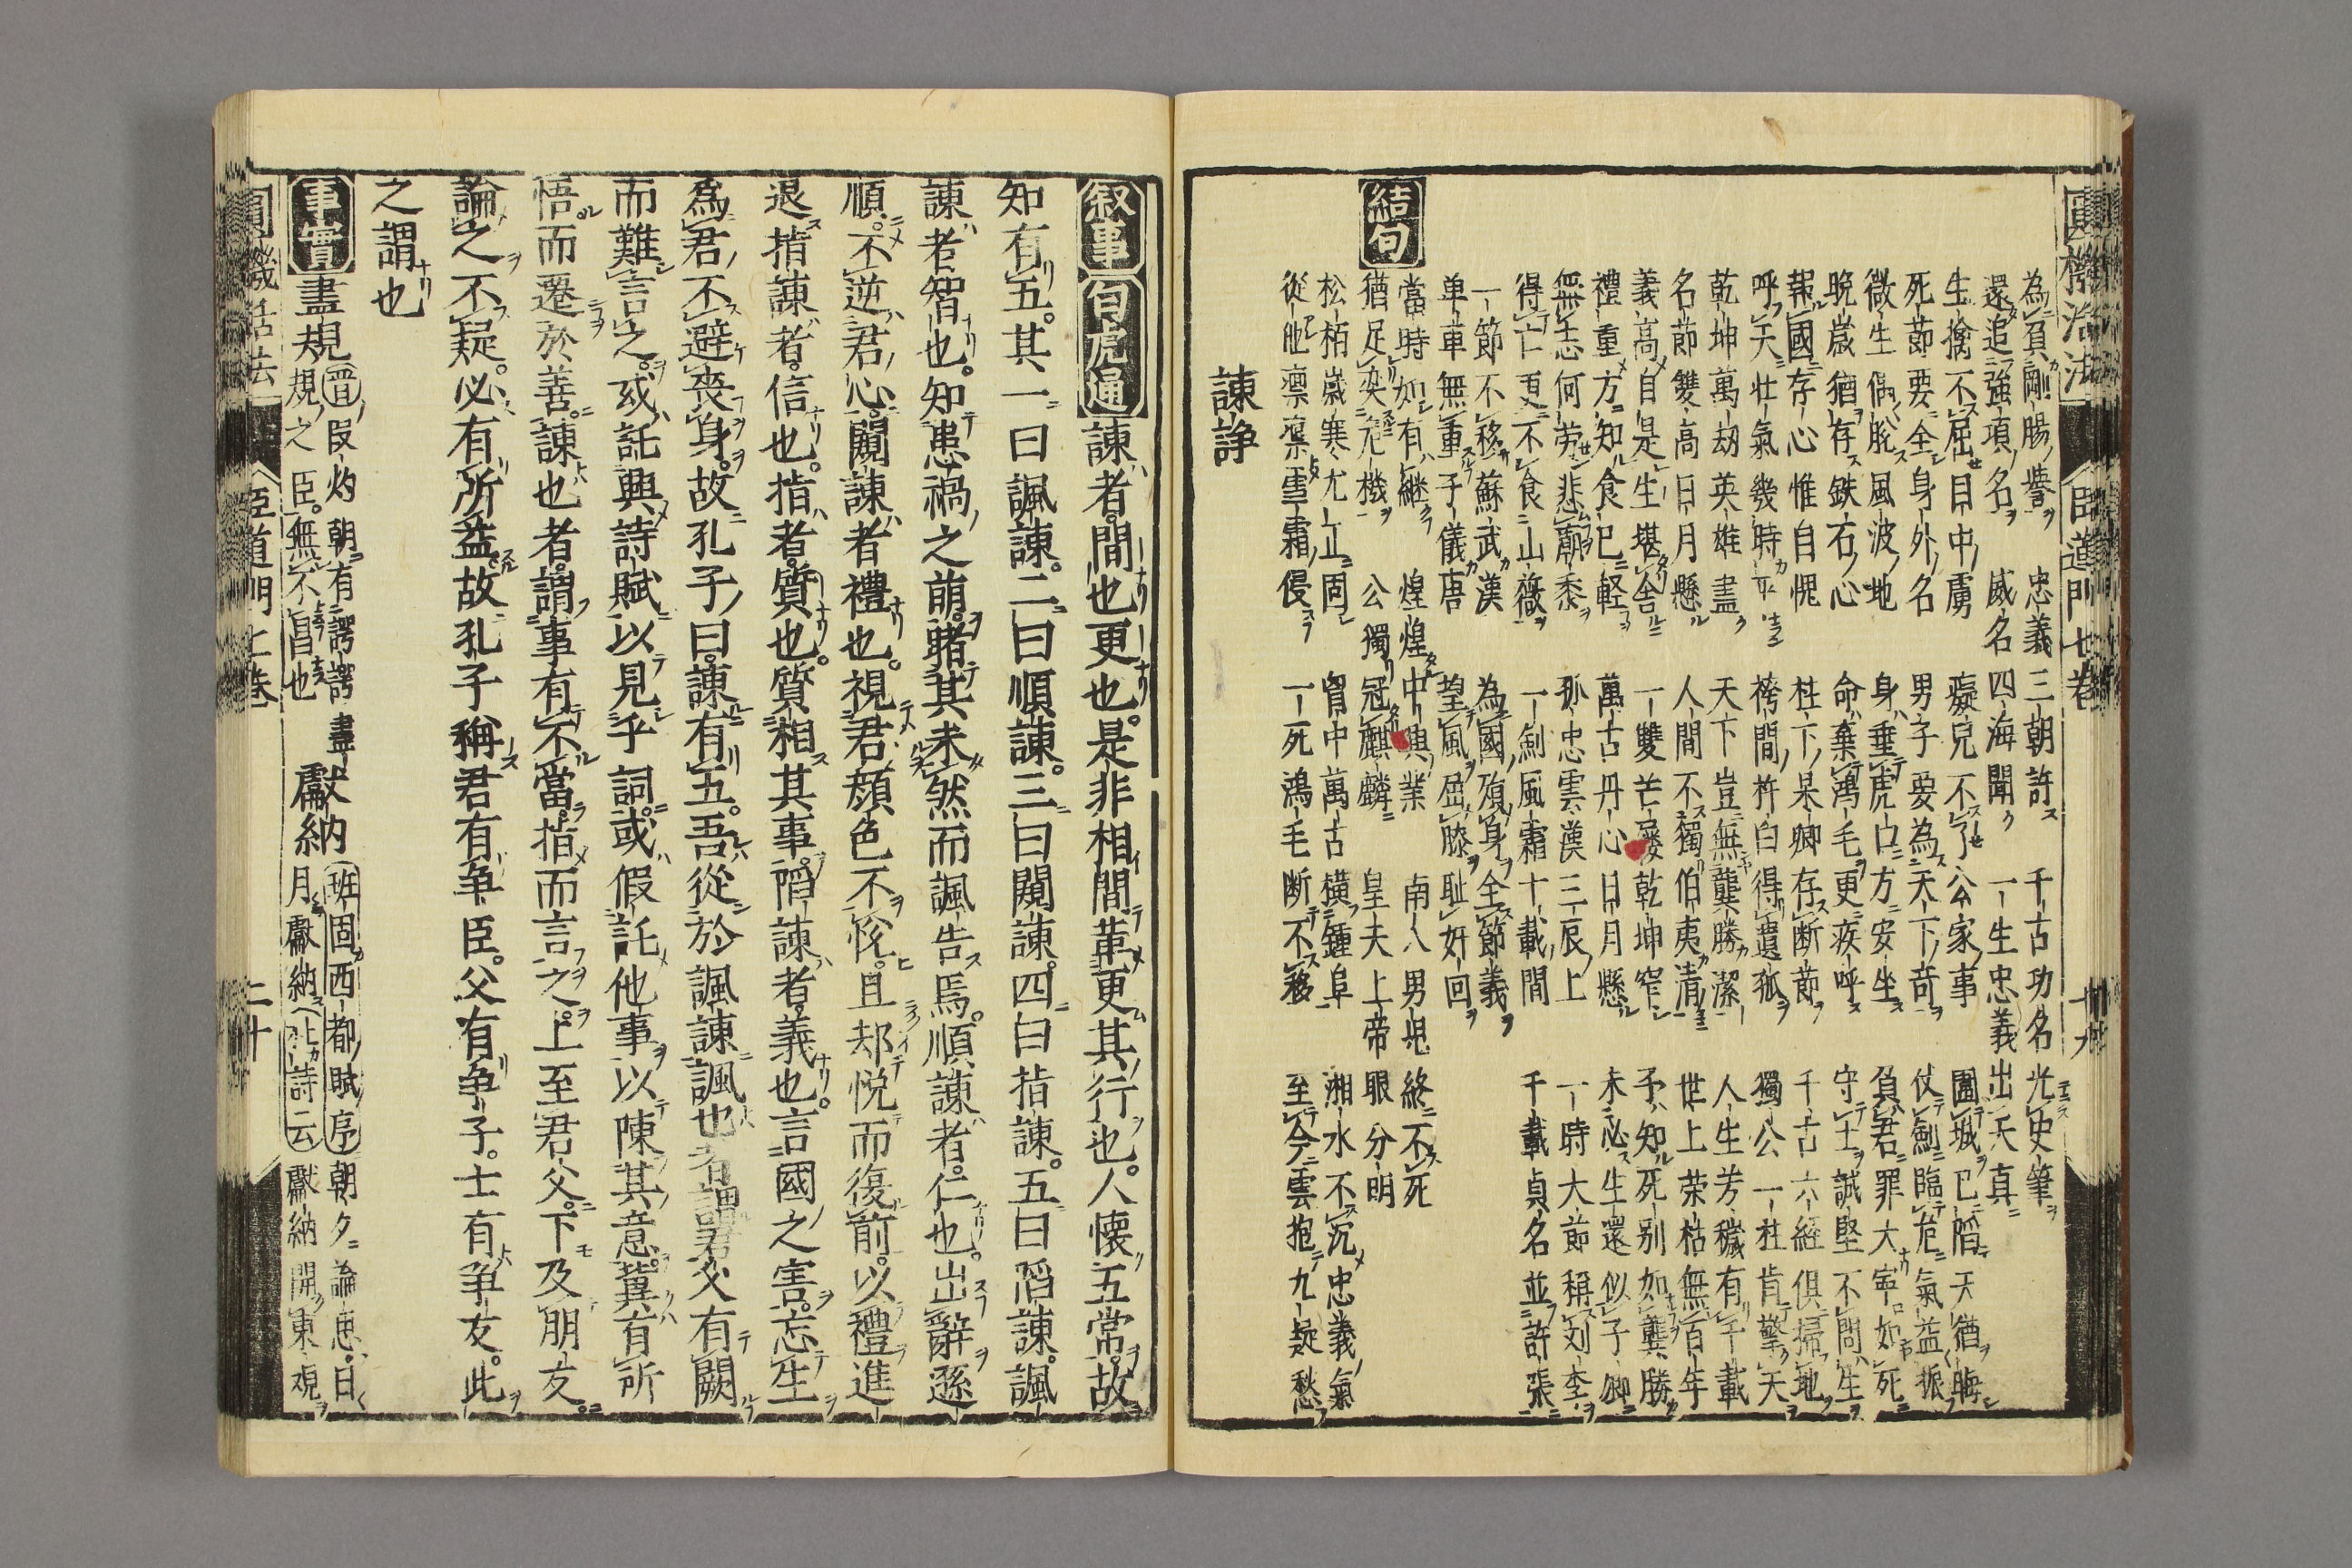 圓機活法 臣道門七巻 十九
為負剛腸譽 忠義三朝許 千古功名光史筆
還追強項名 威名四海聞 一生忠義出天真
生擒不屈目中虜 癡兒不了公家事 圍城已陷天猶晦
死節要全身外名 男子要為天下奇 仗劍臨危氣益振
微生偶脱風波地 身垂虎口方安坐 負君罪大寧如死
晩歳猶存鉄石心 命棄鴻毛更疾呼 守土誠堅不問生
報國存心惟自愧 杲卿存断節 千古六経倶掃地
呼天壮氣幾時平 袴間杵臼得遺孤 獨公一柱肯擎天
乾坤萬劫英雄盡 天下豈無龔勝潔 人生芳穢有千載
名節雙高日月懸 人間不獨伯夷清 世上荣枯無百年
義高自是生堪舎 一雙芒屨乾坤窄 予知死别如龔勝
禮重方知食已軽 萬古丹心日月懸 未必生還似子卿
無志何労悲廟黍 孤忠雲漢三辰上 一時大節稱刘李
得亡更不食山薇 一劍風霜十載間 千載貞名並許張
一節不移蘇武漢 為國殞身全節義
单車無重子儀唐 望風屈膝耻奸回
結句 當時如有継 煌煌中興業 南八男兒終不死
猶足奕危機 公獨冠麒麟 皇天上帝眼分明
松栢歳寒尤正固 胷中萬古横鍾阜 湘水不沉忠義氣
從他凛凛雪霜侵 一死鴻毛断不移 至今雲抱九疑愁
諌諍
叙事 白虎通 諌者間也更也是非相間革更其行也人懐五常故
知有五其一曰諷諌二曰順諌三曰闚諌四曰指諌五曰陷諌諷
諌者智也知患禍之萠睹其未然而諷告焉順諌者仁也出辭遜
順不逆君心闚諌者禮也視君顔色不悦且却悦而復前以禮進
退指諌者信也指者質也質相其事陷諌者義也言國之害忘生
為君不避喪身故孔子曰諌有五吾從於諷諌諷也者謂君父有闕
而難言之或託興詩賦以見乎詞或假託他事以陳其意冀有所
悟而遷於善諌也者謂事有不當指而言之上至君父下及朋友
論之不疑必有所益故孔子稱君有争臣父有争子士有争友此
之謂也
事實 盡規 晋 灼 朝有諤諤盡
規之臣無不昌也
獻納 班固西都賦序 朝夕論思日
月獻納 詩云 獻納開東觀
圓機活法 臣道門七巻 二十